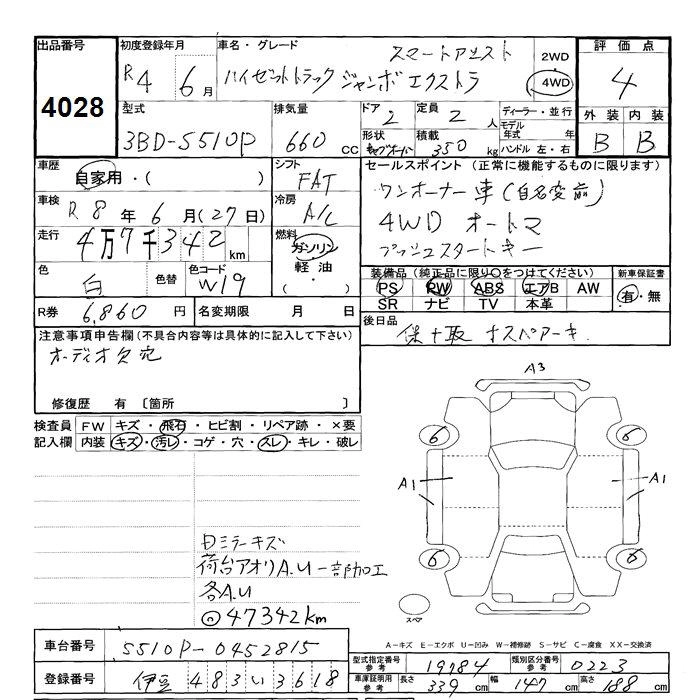 出品番号
4028
初度登録年月
R4 6月
車名・グレード
スマートアシスト
ハイゼットトラック ジャンボ エクストラ
2WD
4WD
評価点
4
外装 内装
B B
型式
3BD-S510P
排気量
660 cc
ドア
2
定員
2 人
形状
積載
350 kg
ディーラー・並行
モデル年式 年
ハンドル 左・右
車歴
自家用・( )
シフト
FAT
セールスポイント (正常に機能するものに限ります)
ワンオーナー車(自名変前)
4WD オートマ
プッシュスタートキー
車検
R 8年 6月(27日)
冷房
A/C
走行
4万7千342km
燃料
ガソリン
軽油・
( )
色
白
色替
色コード
W19
装備品 (純正品に限り○をつけてください)
PS PW ABS エアB AW
SR ナビ TV 本革
新車保証書
有・無
R券 6,860円
名変期限 月 日
後日品
保+取 ナスペアーキ
注意事項申告欄(不具合内容等は具体的に記入して下さい)
オーディオ欠品
修復歴 有 〔箇所 〕
検査員記入欄
FW キズ・飛石・ヒビ割・リペア跡・×要
内装 キズ・汚レ・コゲ・穴・スレ・キレ・破レ
A3
6
6
A1
A1
6
6
スペア
日ミラーキズ
荷台アオリA.U一部加工
各A.U
◎47342km
A－キズ E－エクボ U－凹み W－補修跡 S－サビ C－腐食 XX－交換済
車台番号
S510P-0452815
登録番号
伊豆 483い3618
型式指定番号参考
19784
類別区分番号参考
0223
車庫証明用参考
長さ 339cm
幅 147cm
高さ 188cm